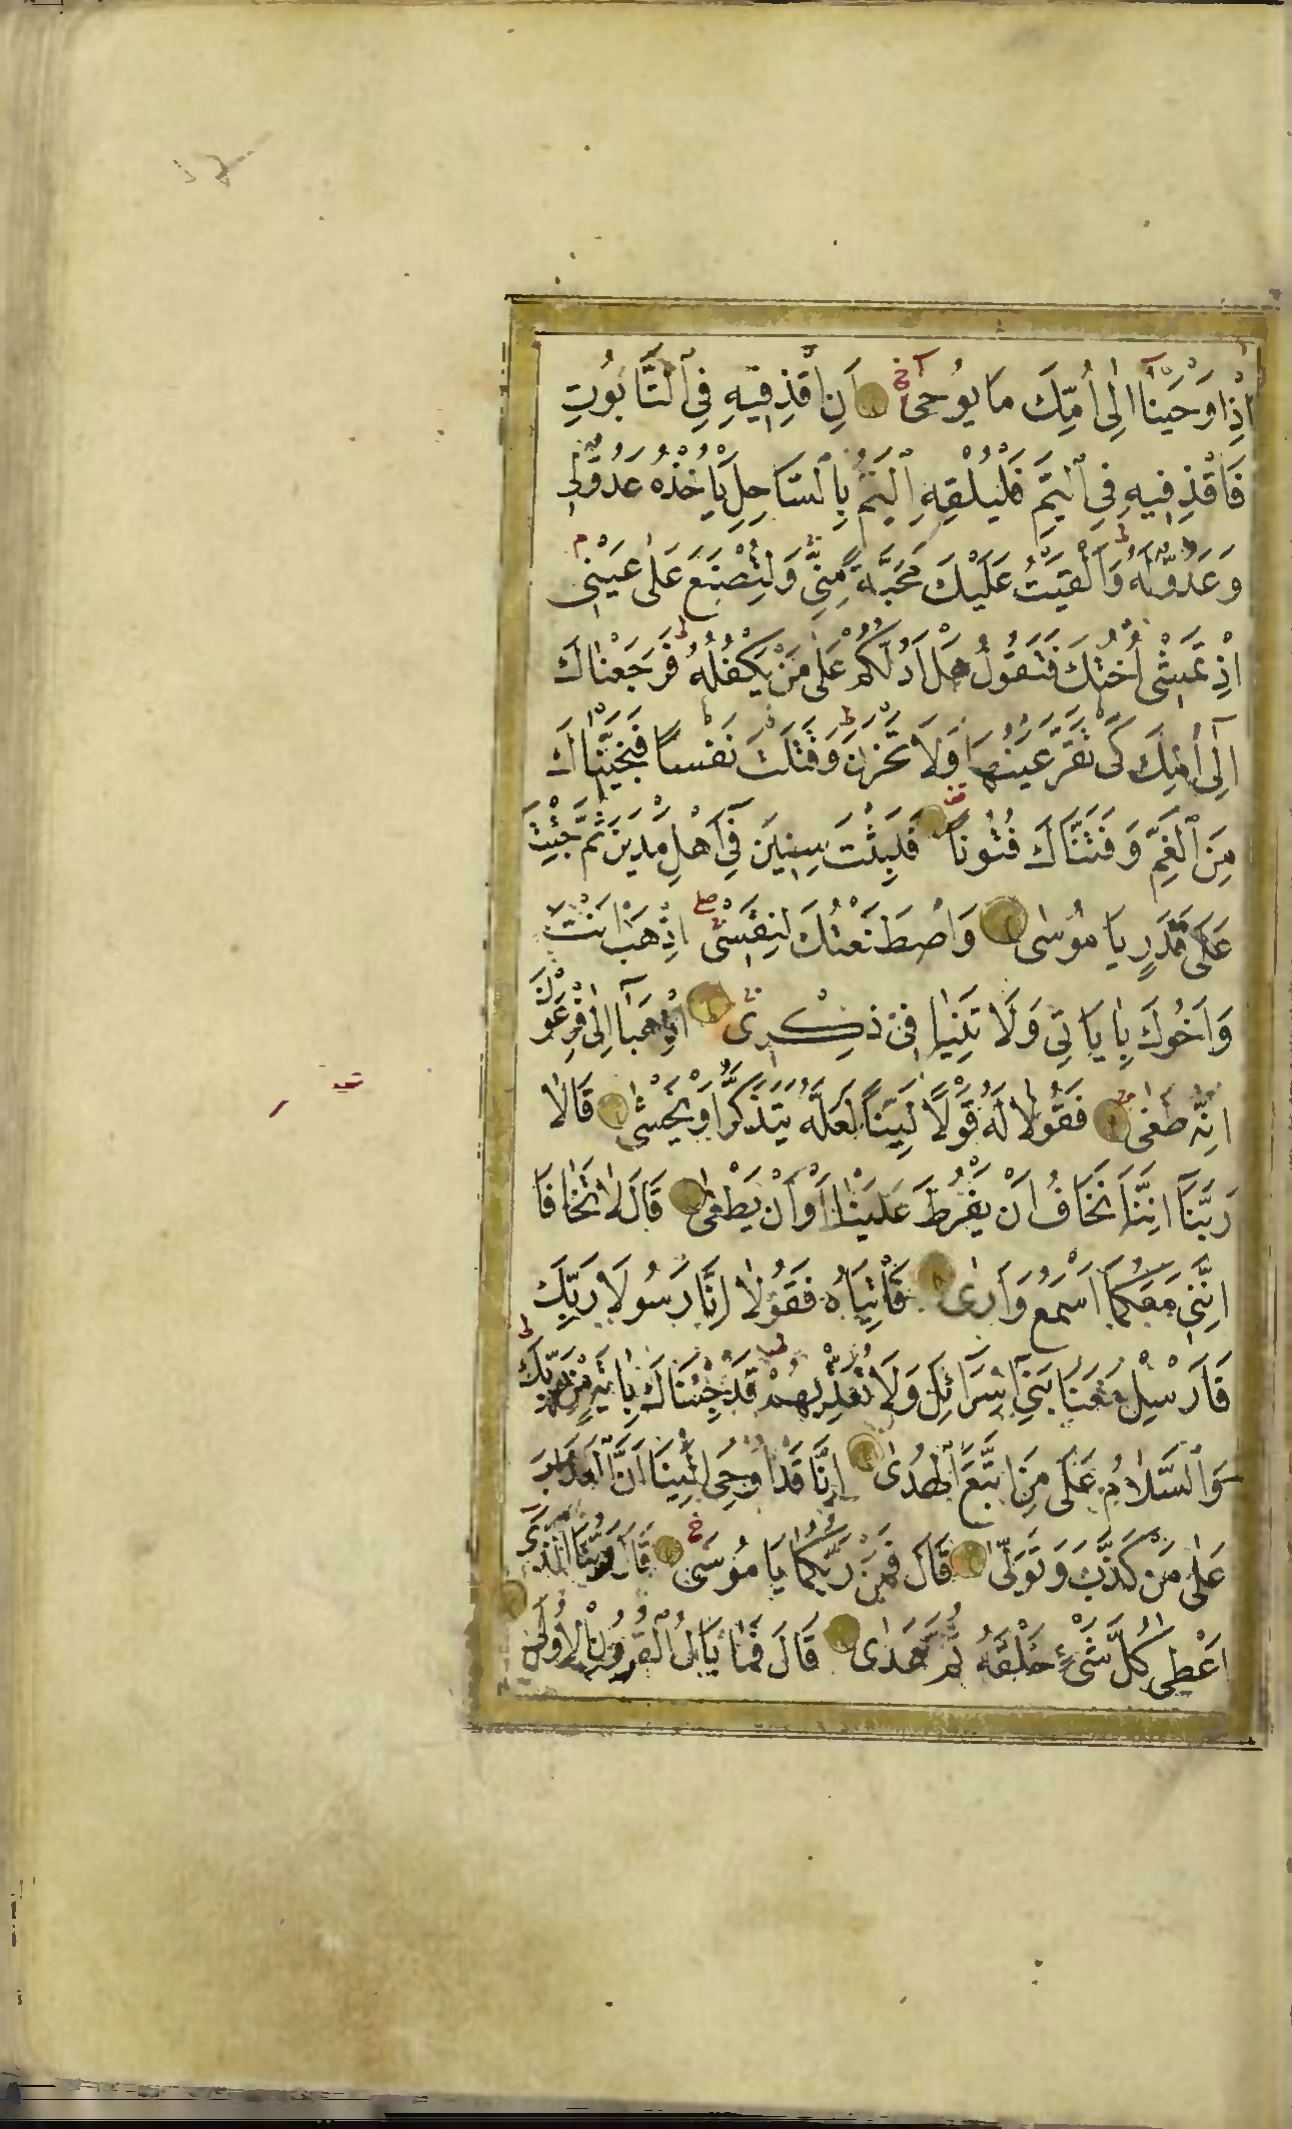 اِذْ اَوْحَيْنَآ اِلٰٓى اُمِّكَ مَا يُوحٰىٓ اَنِ اقْذِفِيهِ فِى ٱلتَّابُوتِ
فَاقْذِفِيهِ فِى ٱلْيَمِّ فَلْيُلْقِهِ ٱلْيَمُّ بِٱلسَّاحِلِ يَاْخُذْهُ عَدُوٌّ لٖى
وَعَدُوٌّ لَهُ وَاَلْقَيْتُ عَلَيْكَ مَحَبَّةً مِنِّى وَلِتُصْنَعَ عَلٰى عَيْنٖى
اِذْ تَمْشٖٓى اُخْتُكَ فَتَقُولُ هَلْ اَدُلُّكُمْ عَلٰى مَنْ يَكْفُلُهُ فَرَجَعْنَاكَ
اِلٰٓى اُمِّكَ كَىْ تَقَرَّ عَيْنُهَا وَلَا تَحْزَنَ وَقَتَلْتَ نَفْسًا فَنَجَّيْنَاكَ
مِنَ ٱلْغَمِّ وَفَتَنَّاكَ فُتُونًا فَلَبِثْتَ سِنٖينَ فٖٓى اَهْلِ مَدْيَنَ ثُمَّ جِئْتَ
عَلٰى قَدَرٍ يَا مُوسٰى وَاصْطَنَعْتُكَ لِنَفْسٖى اِذْهَبْ اَنْتَ
وَاَخُوكَ بِاٰيَاتٖى وَلَا تَنِيَا فٖى ذِكْرٖى اِذْهَبَآ اِلٰى فِرْعَوْنَ
اِنَّهُ طَغٰى فَقُولَا لَهُ قَوْلًا لَيِّنًا لَعَلَّهُ يَتَذَكَّرُ اَوْ يَخْشٰى قَالَا
رَبَّنَآ اِنَّنَا نَخَافُ اَنْ يَفْرُطَ عَلَيْنَآ اَوْ اَنْ يَطْغٰى قَالَ لَا تَخَافَآ
اِنَّنٖى مَعَكُمَآ اَسْمَعُ وَاَرٰى فَاْتِيَاهُ فَقُولَآ اِنَّا رَسُولَا رَبِّكَ
فَاَرْسِلْ مَعَنَا بَنٖٓى اِسْرَآئٖلَ وَلَا تُعَذِّبْهُمْ قَدْ جِئْنَاكَ بِاٰيَةٍ مِنْ رَبِّكَ
وَٱلسَّلَامُ عَلٰى مَنِ اتَّبَعَ ٱلْهُدٰى اِنَّا قَدْ اُوحِىَ اِلَيْنَآ اَنَّ ٱلْعَذَابَ
عَلٰى مَنْ كَذَّبَ وَتَوَلّٰى قَالَ فَمَنْ رَبُّكُمَا يَا مُوسٰى قَالَ رَبُّنَا الَّذٖىٓ
اَعْطٰى كُلَّ شَىْءٍ خَلْقَهُ ثُمَّ هَدٰى قَالَ فَمَا بَالُ ٱلْقُرُونِ الْاُولٰى